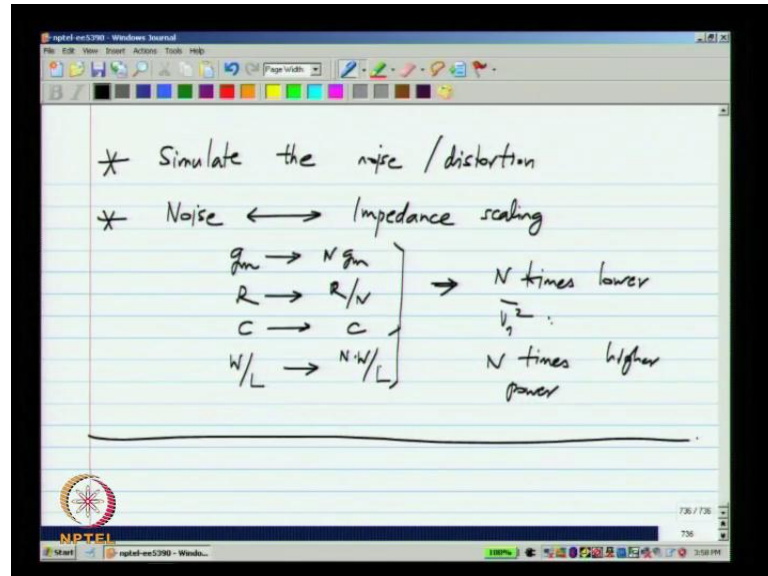 nptel-ee5390 - Windows Journal
File Edit View Insert Actions Tools Help
Page Width
B I
* Simulate the noise / distortion
* Noise ⟷ Impedance scaling
gm → N gm
R → R/N
C → C
W/L → N·W/L
→ N times lower
N times higher
power
736 / 736
736
NPTEL
Start nptel-ee5390 - Windo... 100% 3:58 PM